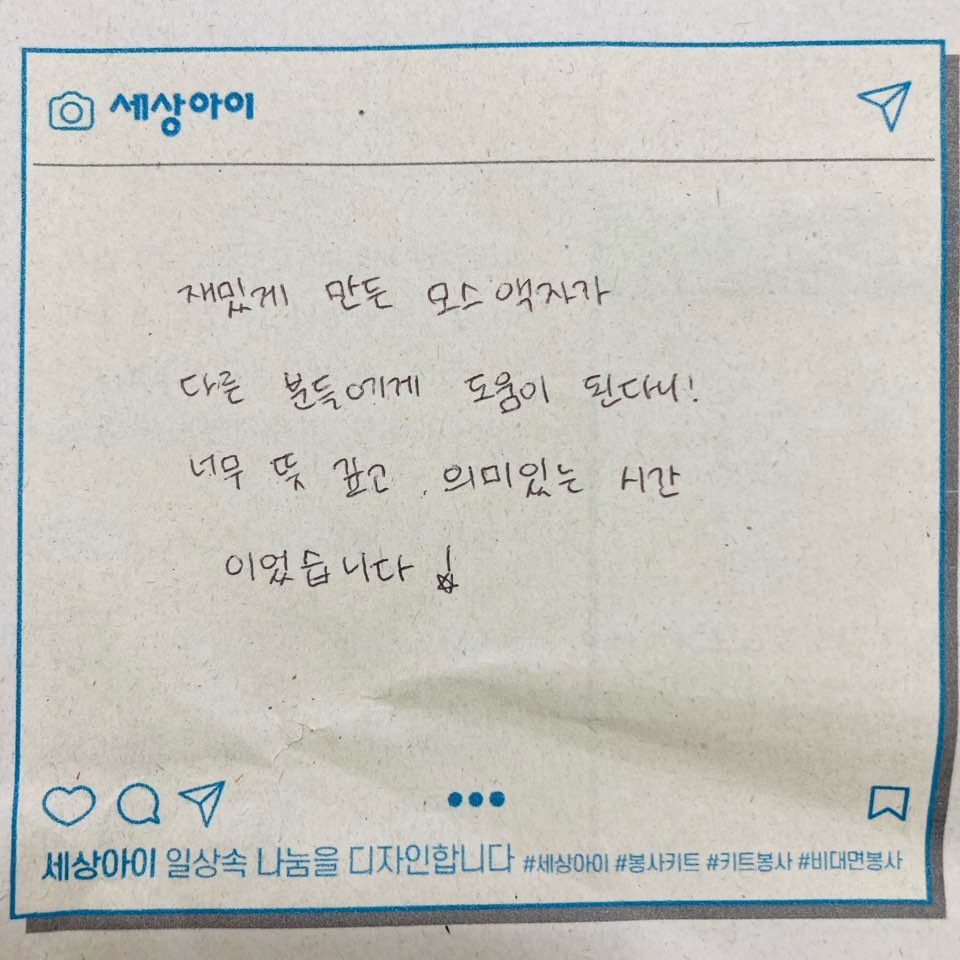 세상아이
재밌게 만든 모스 액자가
다른 분들에게 도움이 된다니!
너무 뜻 깊고 의미있는 시간
이었습니다!
세상아이 일상속 나눔을 디자인합니다 #세상아이 #봉사키트 #키트봉사 #비대면봉사